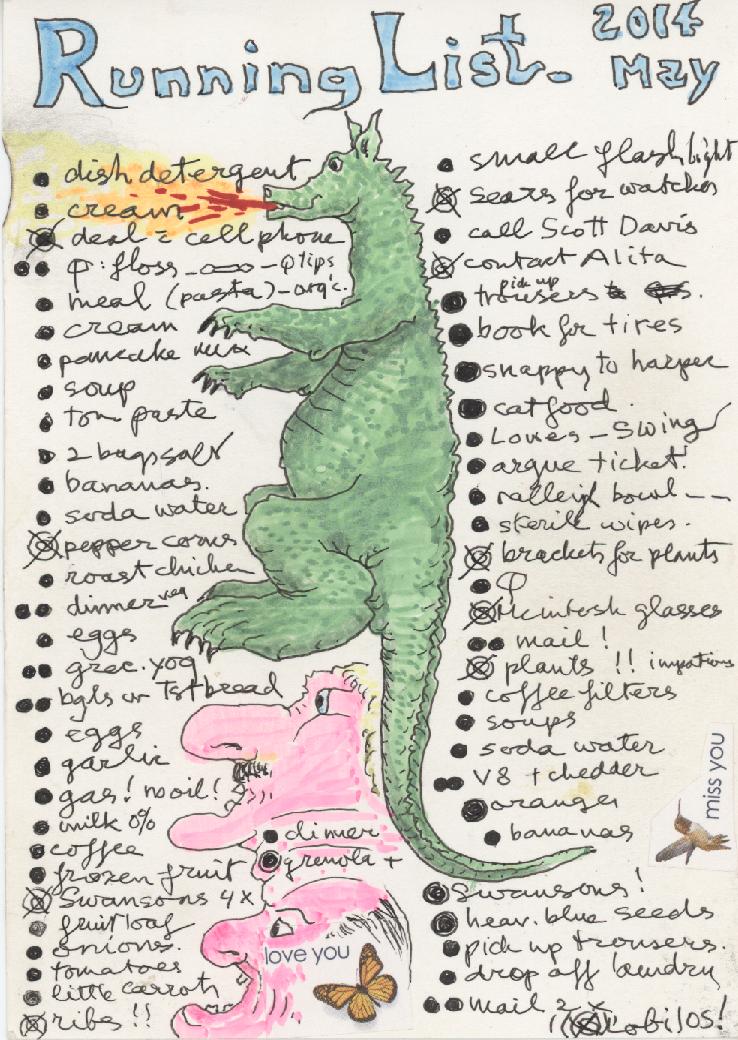 Running List.
2014
May
dish detergent
cream
deal = cell phone
φ: floss - - φtips
meal (pasta) - org'c.
cream
pancake mix
soup
tom paste
2 bags salt
bananas.
soda water
pepper corns
roast chicken
dinner veg
eggs
grec. yog
bgls or Tst bread
eggs
garlic
gas! no oil!
milk 0%
coffee
frozen fruit
Swansons 4x
fruit loaf
onions.
tomatoes
little carrots
ribs!!
dinner
grenola +
love you
small flashlight
sears for watches
call Scott Davis
contact Alita
pick up
trousers
book for tires
snappy to harper
cat food.
Lowes - Swing
argue ticket.
ralleigh bowl - -
sterile wipes.
brackets for plants
φ
McIntosh glasses
mail!
plants !! impatiens
coffee filters
soups
soda water
V8 + chedder
oranges
bananas
miss you
Swansons!
heav. blue seeds
pick up trousers.
drop off laundry
mail 2x
Lobilos!